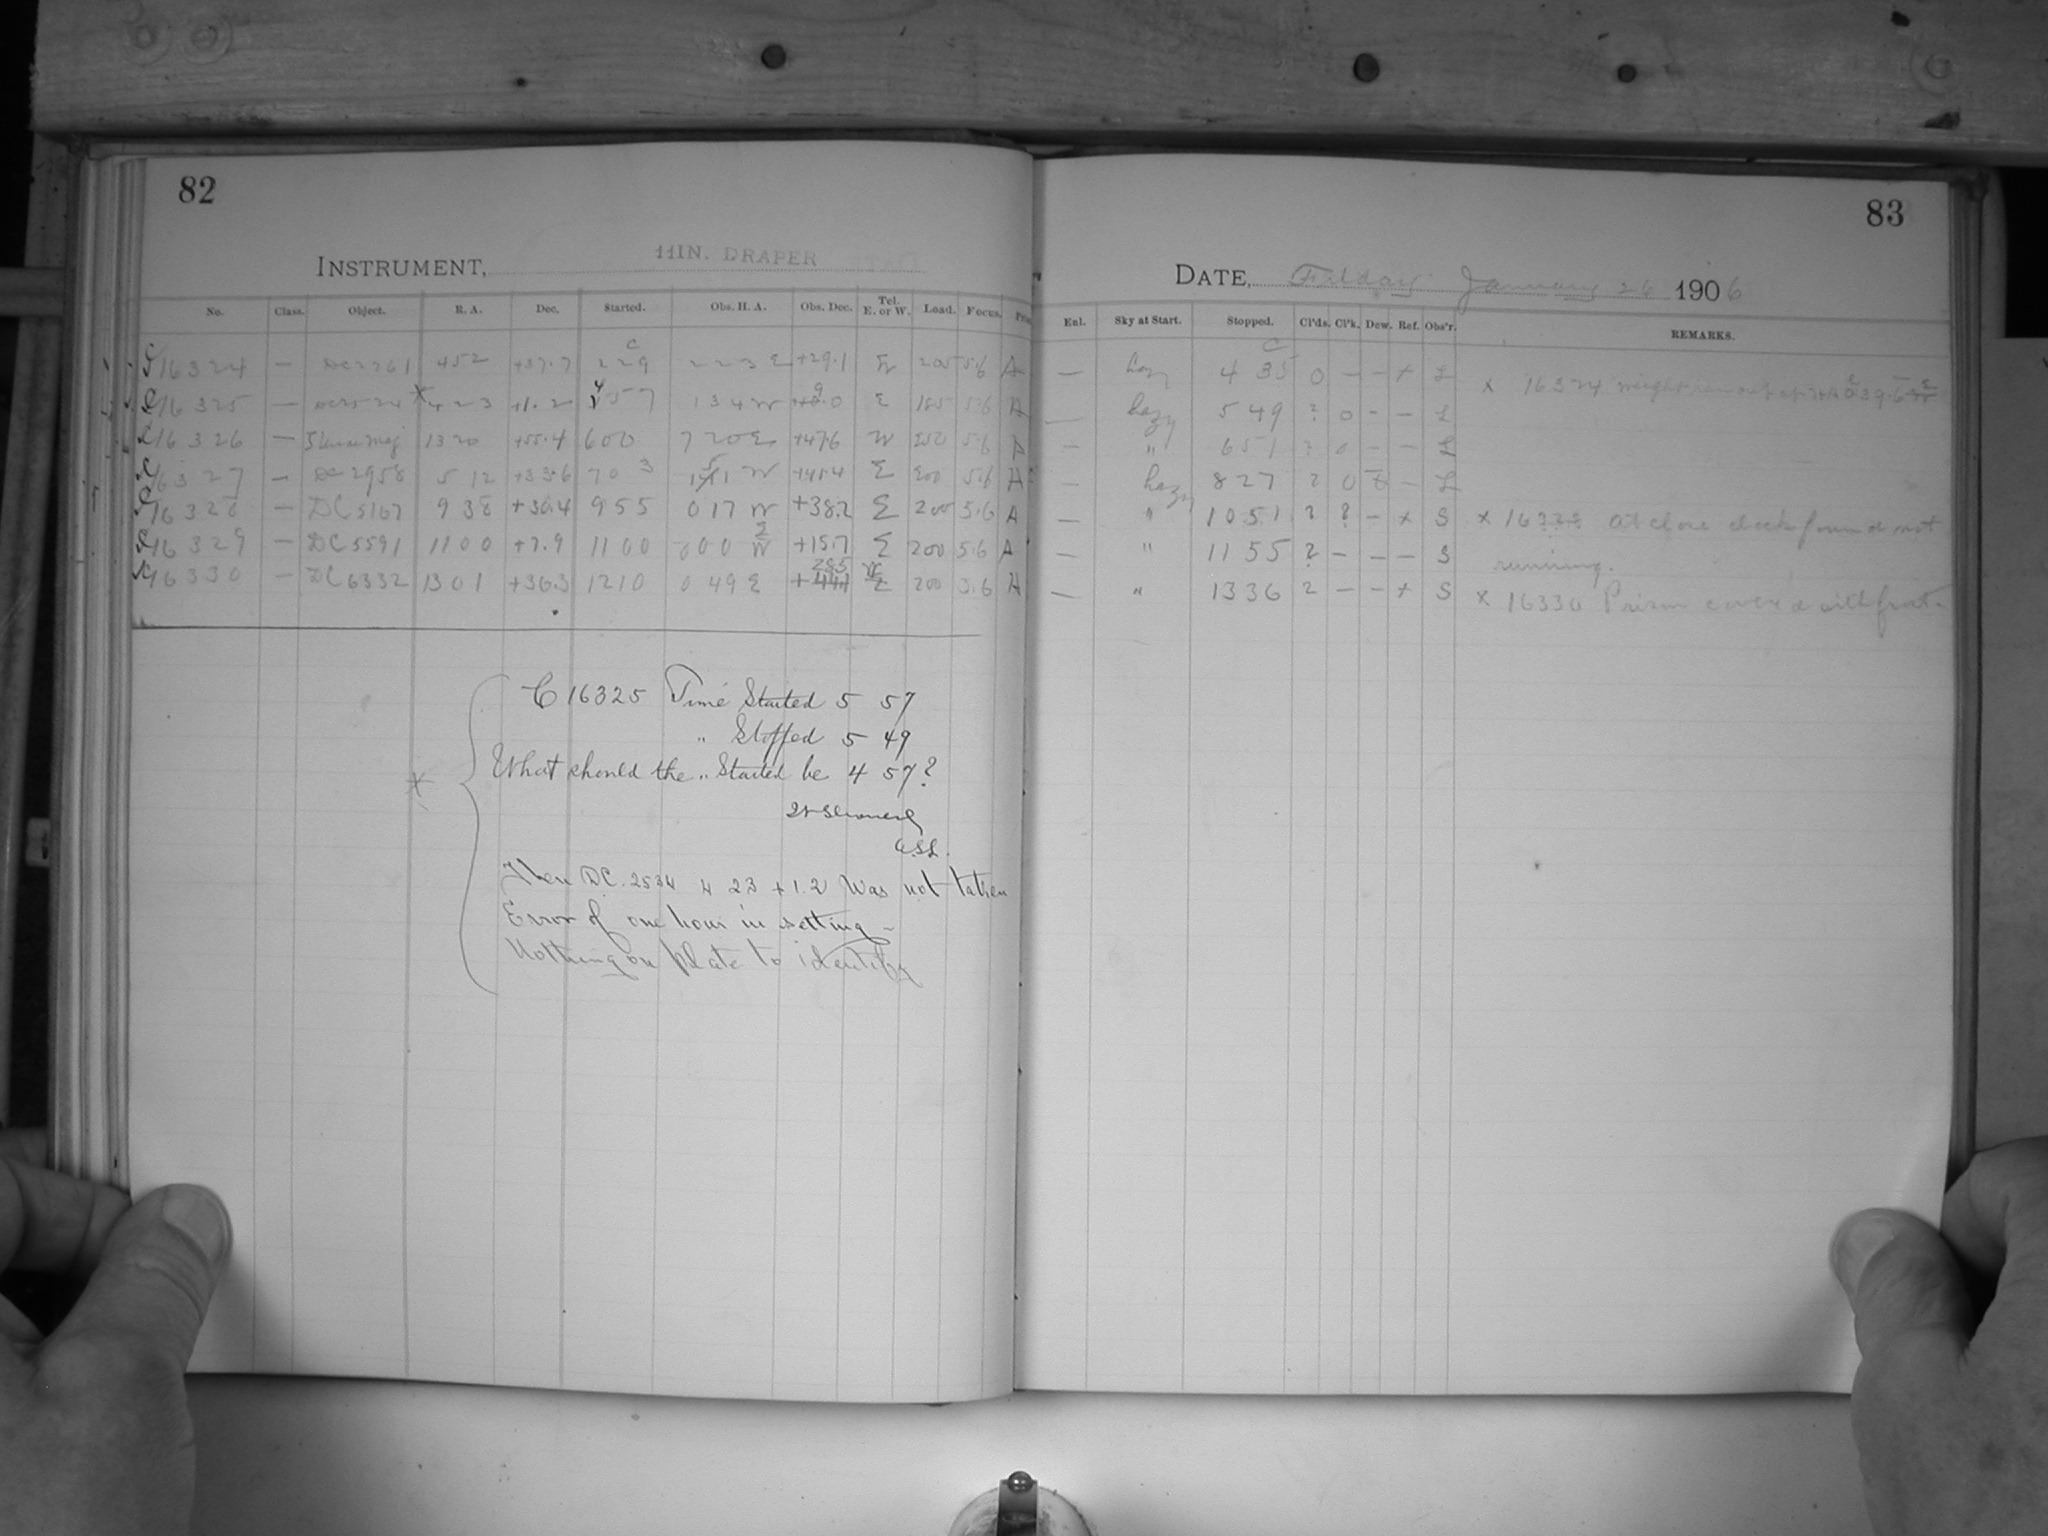 82
83
INSTRUMENT, 11IN. DRAPER
DATE, Friday January 26 1906
No. Class. Object. R. A. Dec. Started. Obs. H. A. Obs. Dec. Tel. E. or W. Load. Focus.
Enl. Sky at Start. Stopped. Cl'ds. Cl'k. Dew. Ref. Obs'r. REMARKS.
16324 — DC 2761 4 52 +37.7 2 29 2 23 E +29.1 205 5.6 A — hazy 4 35 0 — — + L x 16324 weight
16325 — 4 23 +1.2 57 1 34 W E 185 5.6 A — hazy 5 49 ? 0 — — L
16326 — 13 20 +55.4 6 00 7 20 E +47.6 W 250 5.6 A — " 6 51 ? 0 — — L
16327 — DC 2958 5 12 +33.6 7 0 3 W +41.4 E 200 5.6 A — hazy 8 27 ? 0 — L
16328 — DC 5167 9 38 +30.4 9 55 0 17 W +38.2 E 200 5.6 A — " 10 51 ? ? — x S x 16328 at close clock found not
running.
16329 — DC 5591 11 00 +7.9 11 00 0 00 +15.7 E 200 5.6 A — " 11 55 ? — — — S
16330 — DC 6332 13 01 +36.3 12 10 0 49 E 28.5 W 200 5.6 A — " 13 36 2 — — + S x 16330 Prism cover'd with frost.
C 16325 Time Started 5 57
" Stopped 5 49
What should the " Started be 4 57?
Then D.C. 2534 4 23 +1.2 Was not taken
Error of one hour in setting –
Nothing on plate to identify